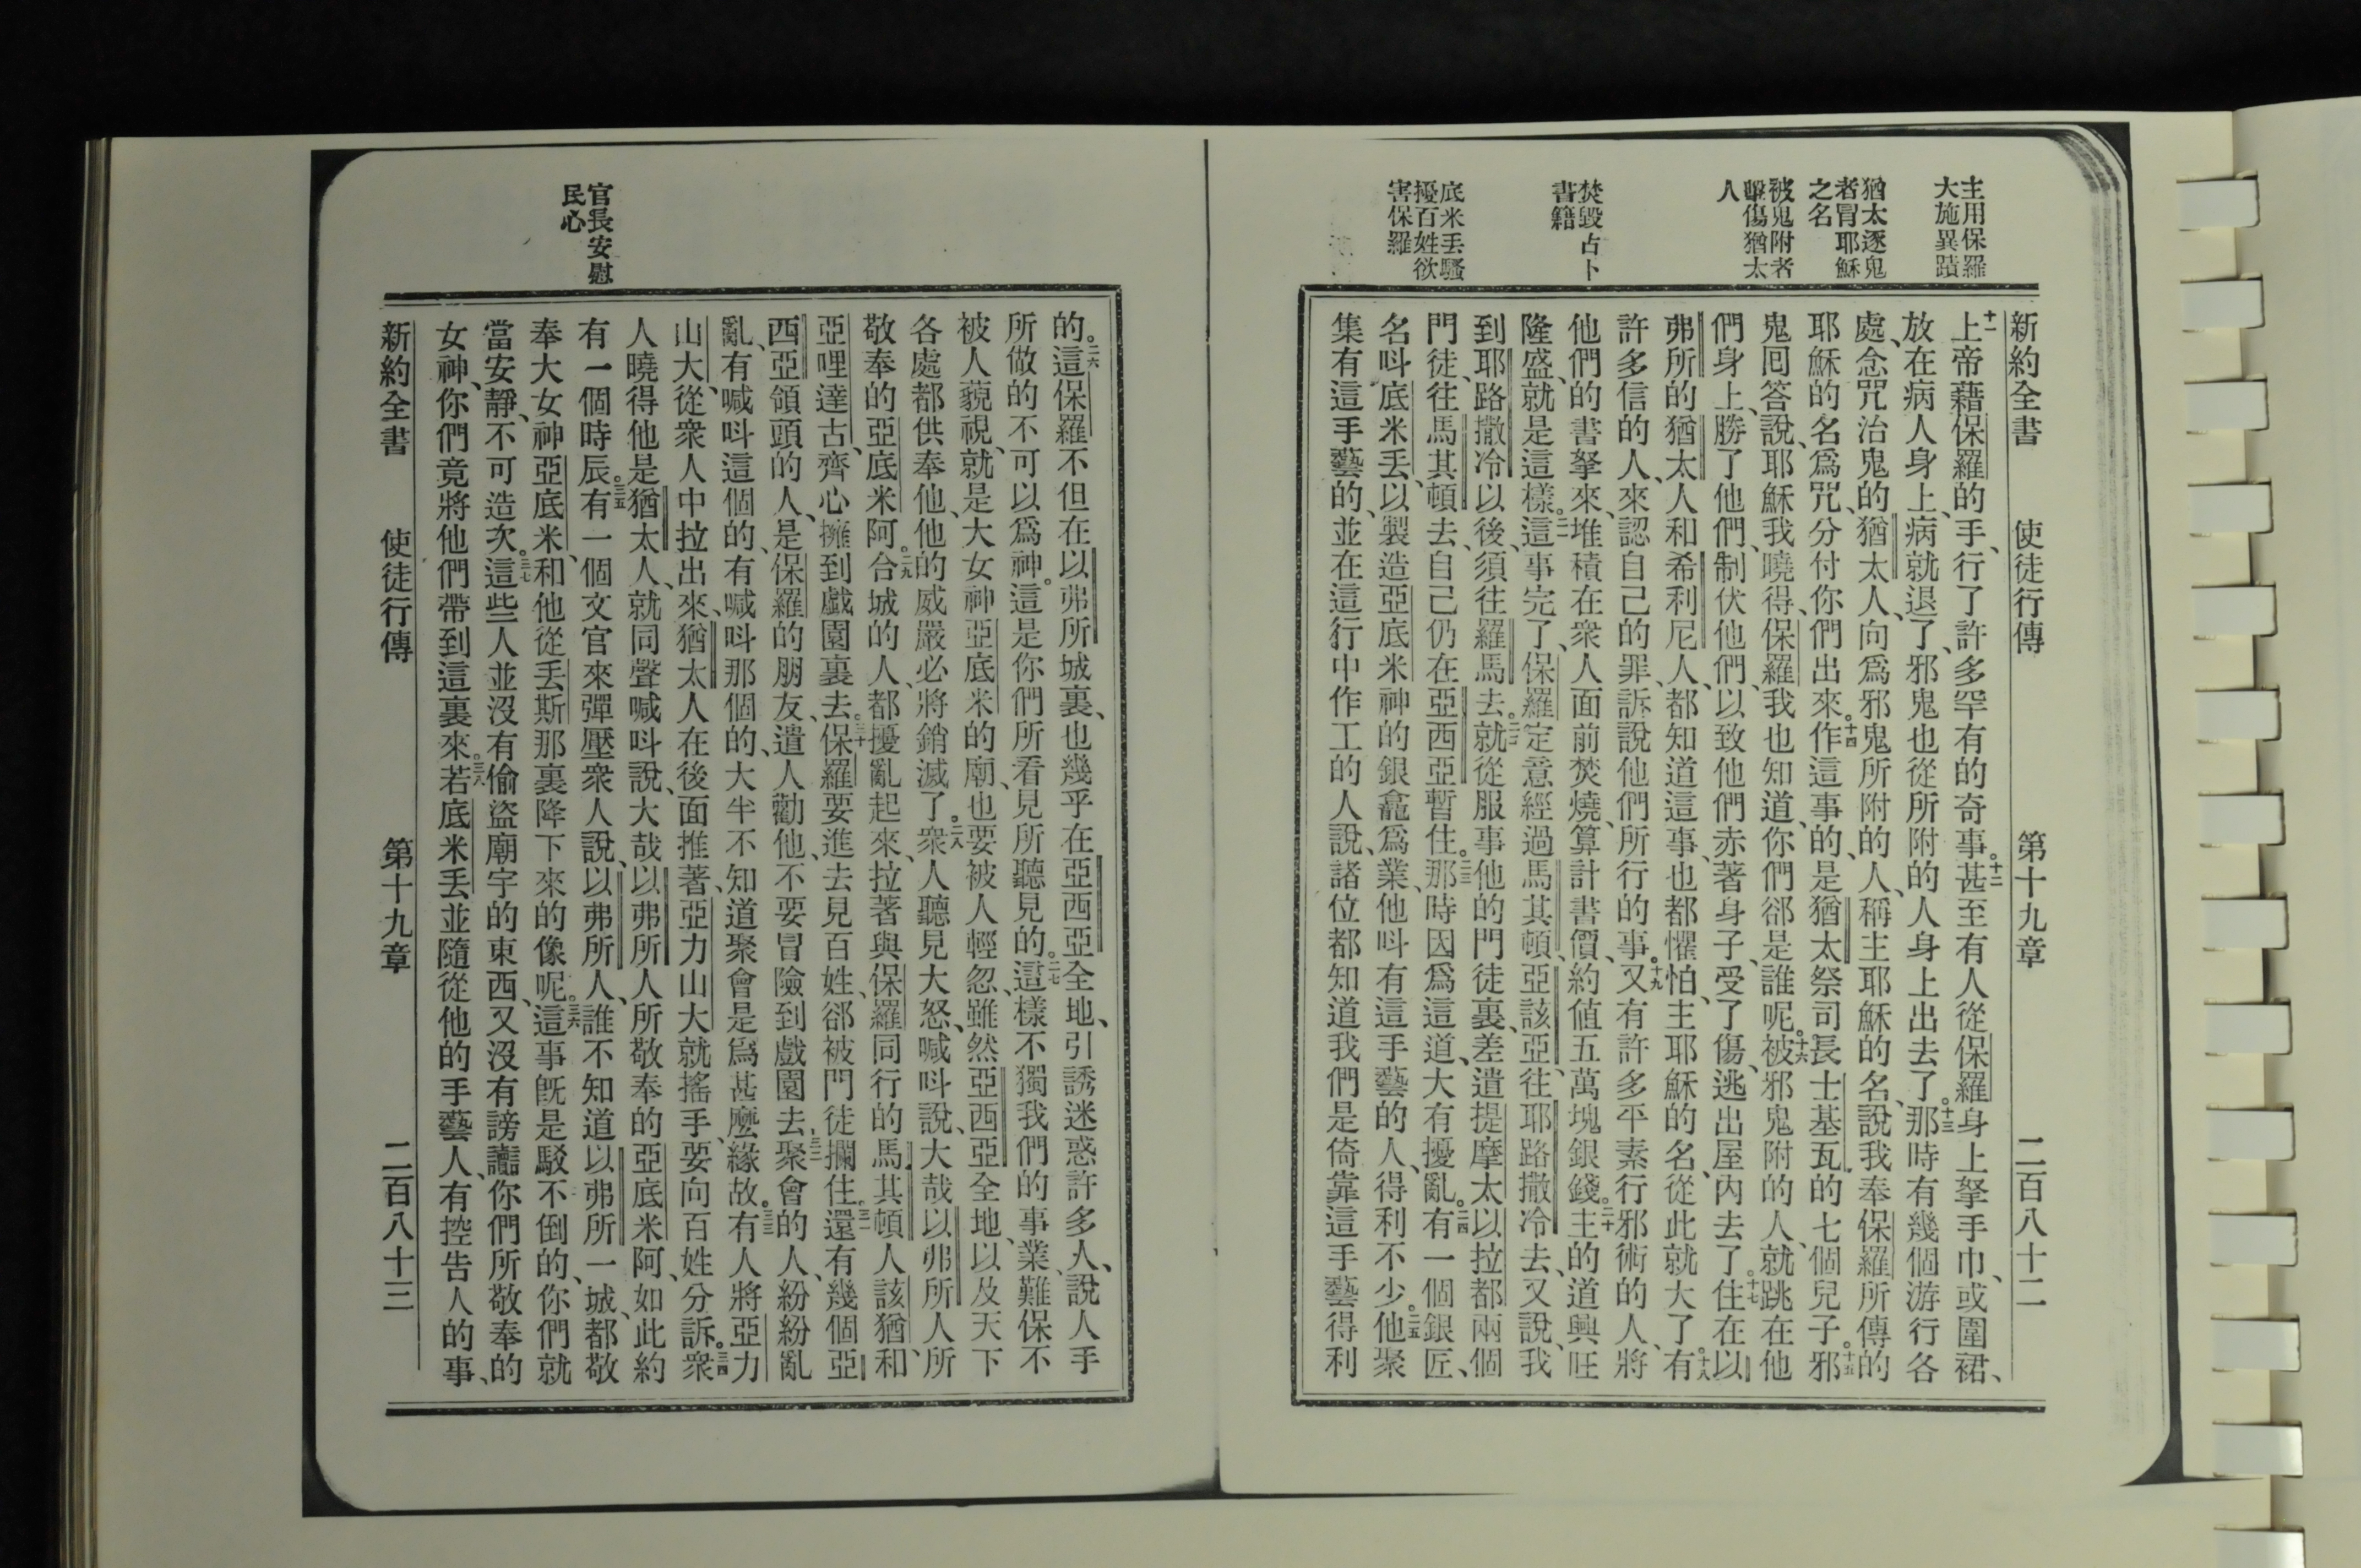 主用保羅
大施異蹟
猶太逐鬼
者冒耶穌
之名
被鬼附者
擊傷猶太
人
焚毀占卜
書籍
底米丟騷
擾百姓欲
害保羅
新約全書 使徒行傳 第十九章 二百八十二
十一上帝藉保羅的手、行了許多罕有的奇事。十二甚至有人從保羅身上拏手巾、或圍裙、
放在病人身上、病就退了、邪鬼也從所附的人身上出去了。十三那時有幾個游行各
處、念咒治鬼的猶太人、向爲邪鬼所附的人、稱主耶穌的名、說我奉保羅所傳的
耶穌的名爲咒、分付你們出來。十四作這事的、是猶太祭司長士基瓦的七個兒子。十五邪
鬼囘答說、耶穌我曉得、保羅我也知道、你們郤是誰呢。十六被邪鬼附的人、就跳在他
們身上、勝了他們、制伏他們、以致他們赤著身子、受了傷、逃出屋內去了。十七住在以
弗所的猶太人和希利尼人、都知道這事、也都懼怕、主耶穌的名、從此就大了。十八有
許多信的人、來認自己的罪、訴說他們所行的事。十九又有許多平素行邪術的人、將
他們的書拏來、堆積在衆人面前焚燒、算計書價、約值五萬塊銀錢。二十主的道興旺
隆盛、就是這樣。二一這事完了、保羅定意經過馬其頓、亞該亞、往耶路撒冷去、又說、我
到耶路撒冷以後、須往羅馬去。二二就從服事他的門徒裏、差遣提摩太以拉都兩個
門徒、往馬其頓去、自己仍在亞西亞暫住。二三那時因爲這道、大有擾亂。二四有一個銀匠、
名呌底米丟、以製造亞底米神的銀龕爲業、他呌有這手藝的人、得利不少。二五他聚
集有這手藝的、並在這行中作工的人、說、諸位都知道我們是倚靠這手藝得利
官長安慰
民心
的。二六這保羅不但在以弗所城裏、也幾乎在亞西亞全地、引誘迷惑許多人、說人手
所做的不可以爲神。這是你們所看見所聽見的。二七這樣不獨我們的事業、難保不
被人藐視、就是大女神亞底米的廟、也要被人輕忽、雖然亞西亞全地、以及天下
各處都供奉他、他的威嚴必將銷滅了。二八衆人聽見大怒、喊呌說、大哉以弗所人所
敬奉的亞底米阿。二九合城的人、都擾亂起來、拉著與保羅同行的馬其頓人該猶、和
亞哩達古、齊心擁到戲園裏去。三十保羅要進去見百姓、郤被門徒攔住。三一還有幾個亞
西亞領頭的人、是保羅的朋友、遣人勸他、不要冒險到戲園去。三二聚會的人、紛紛亂
亂、有喊呌這個的、有喊呌那個的、大半不知道聚會是爲甚麽緣故。三三有人將亞力
山大、從衆人中拉出來、猶太人在後面推著、亞力山大就搖手、要向百姓分訴。三四衆
人曉得他是猶太人、就同聲喊呌說、大哉以弗所人所敬奉的亞底米阿、如此約
有一個時辰。三五有一個文官來彈壓衆人說、以弗所人、誰不知道以弗所一城、都敬
奉大女神亞底米、和他從丟斯那裏降下來的像呢。三六這事旣是駁不倒的、你們就
當安靜、不可造次。三七這些人並沒有偷盜廟宇的東西、又沒有謗讟你們所敬奉的
女神、你們竟將他們帶到這裏來。三八若底米丟並隨從他的手藝人、有控告人的事、
新約全書 使徒行傳 第十九章 二百八十三